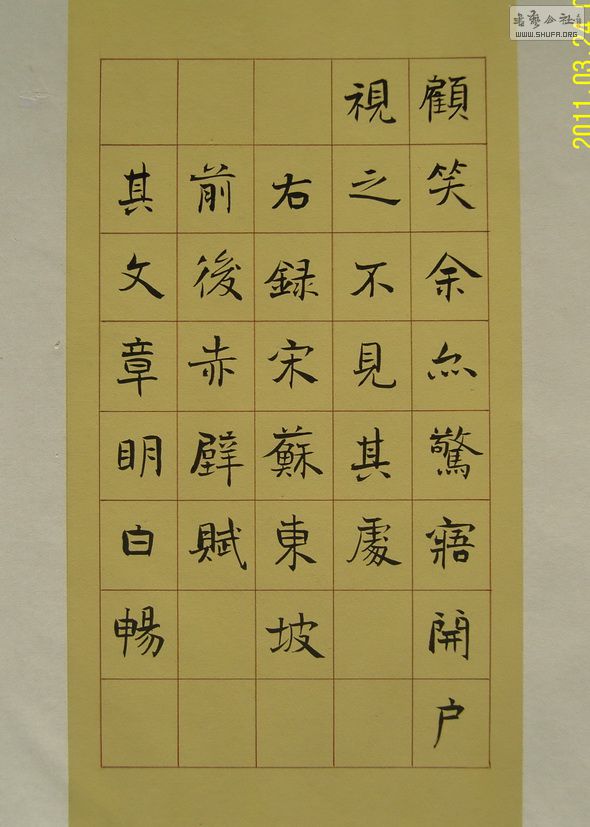 顧笑余亦驚寤開户
視之不見其處
右録宋蘇東坡
前後赤壁賦
其文章明白暢
書藝公社
WWW.SHUFA.ORG